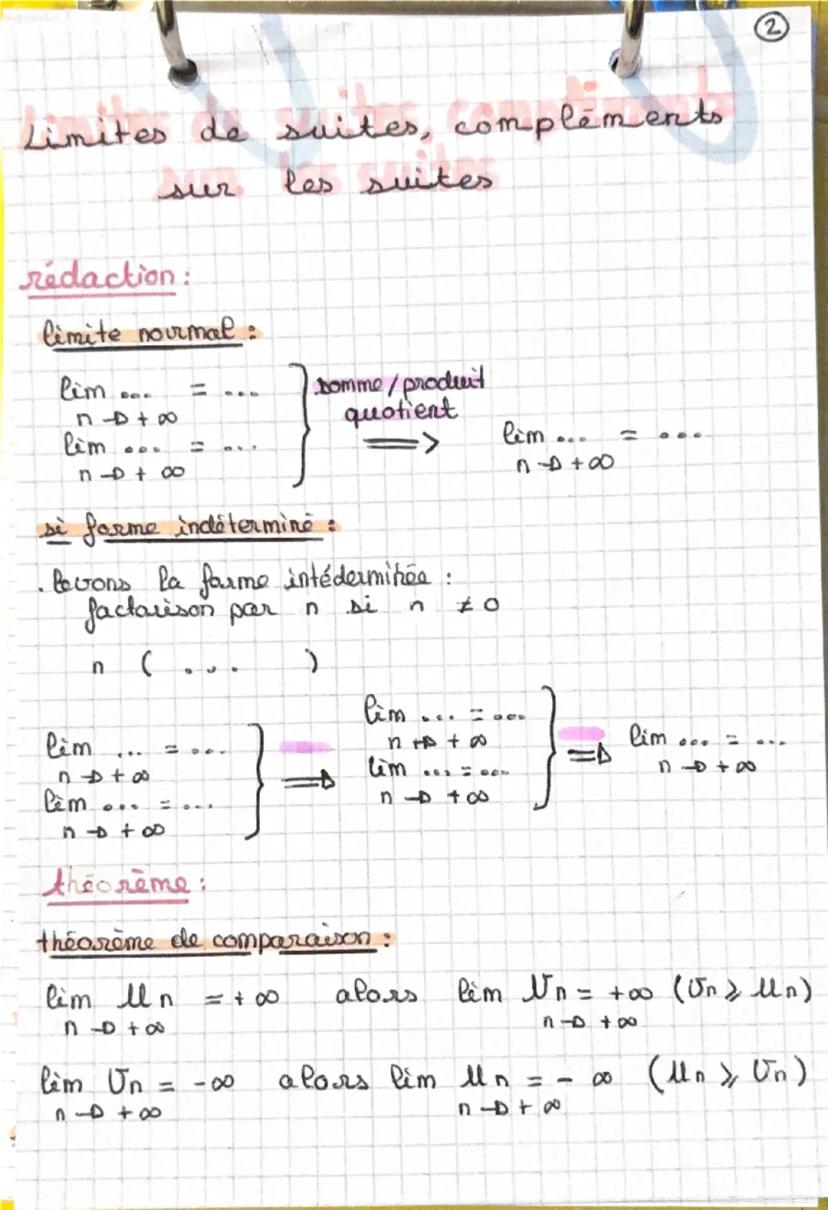 ②
Limites de suites, compléments
sur les suites
rédaction :
limite normal :
lim ... = ...
n → +∞
lim ... = ...
n → +∞
somme / produit
quotient
⟹
lim ... = ...
n → +∞
si forme indéterminé :
. levons la forme intédermihée :
factorison par n si n ≠ 0
n ( ... )
lim ... = ...
n → +∞
lim ... = ...
n → +∞
⟹
lim ... = ...
n → +∞
lim ... = ...
n → +∞
⟹
lim ... = ...
n → +∞
théorème :
théorème de comparaison :
lim Un = +∞ alors lim Vn = +∞ (Vn ⩾ Un)
n → +∞ n → +∞
lim Vn = -∞ alors lim Un = -∞ (Un ⩾ Vn)
n → +∞ n → +∞